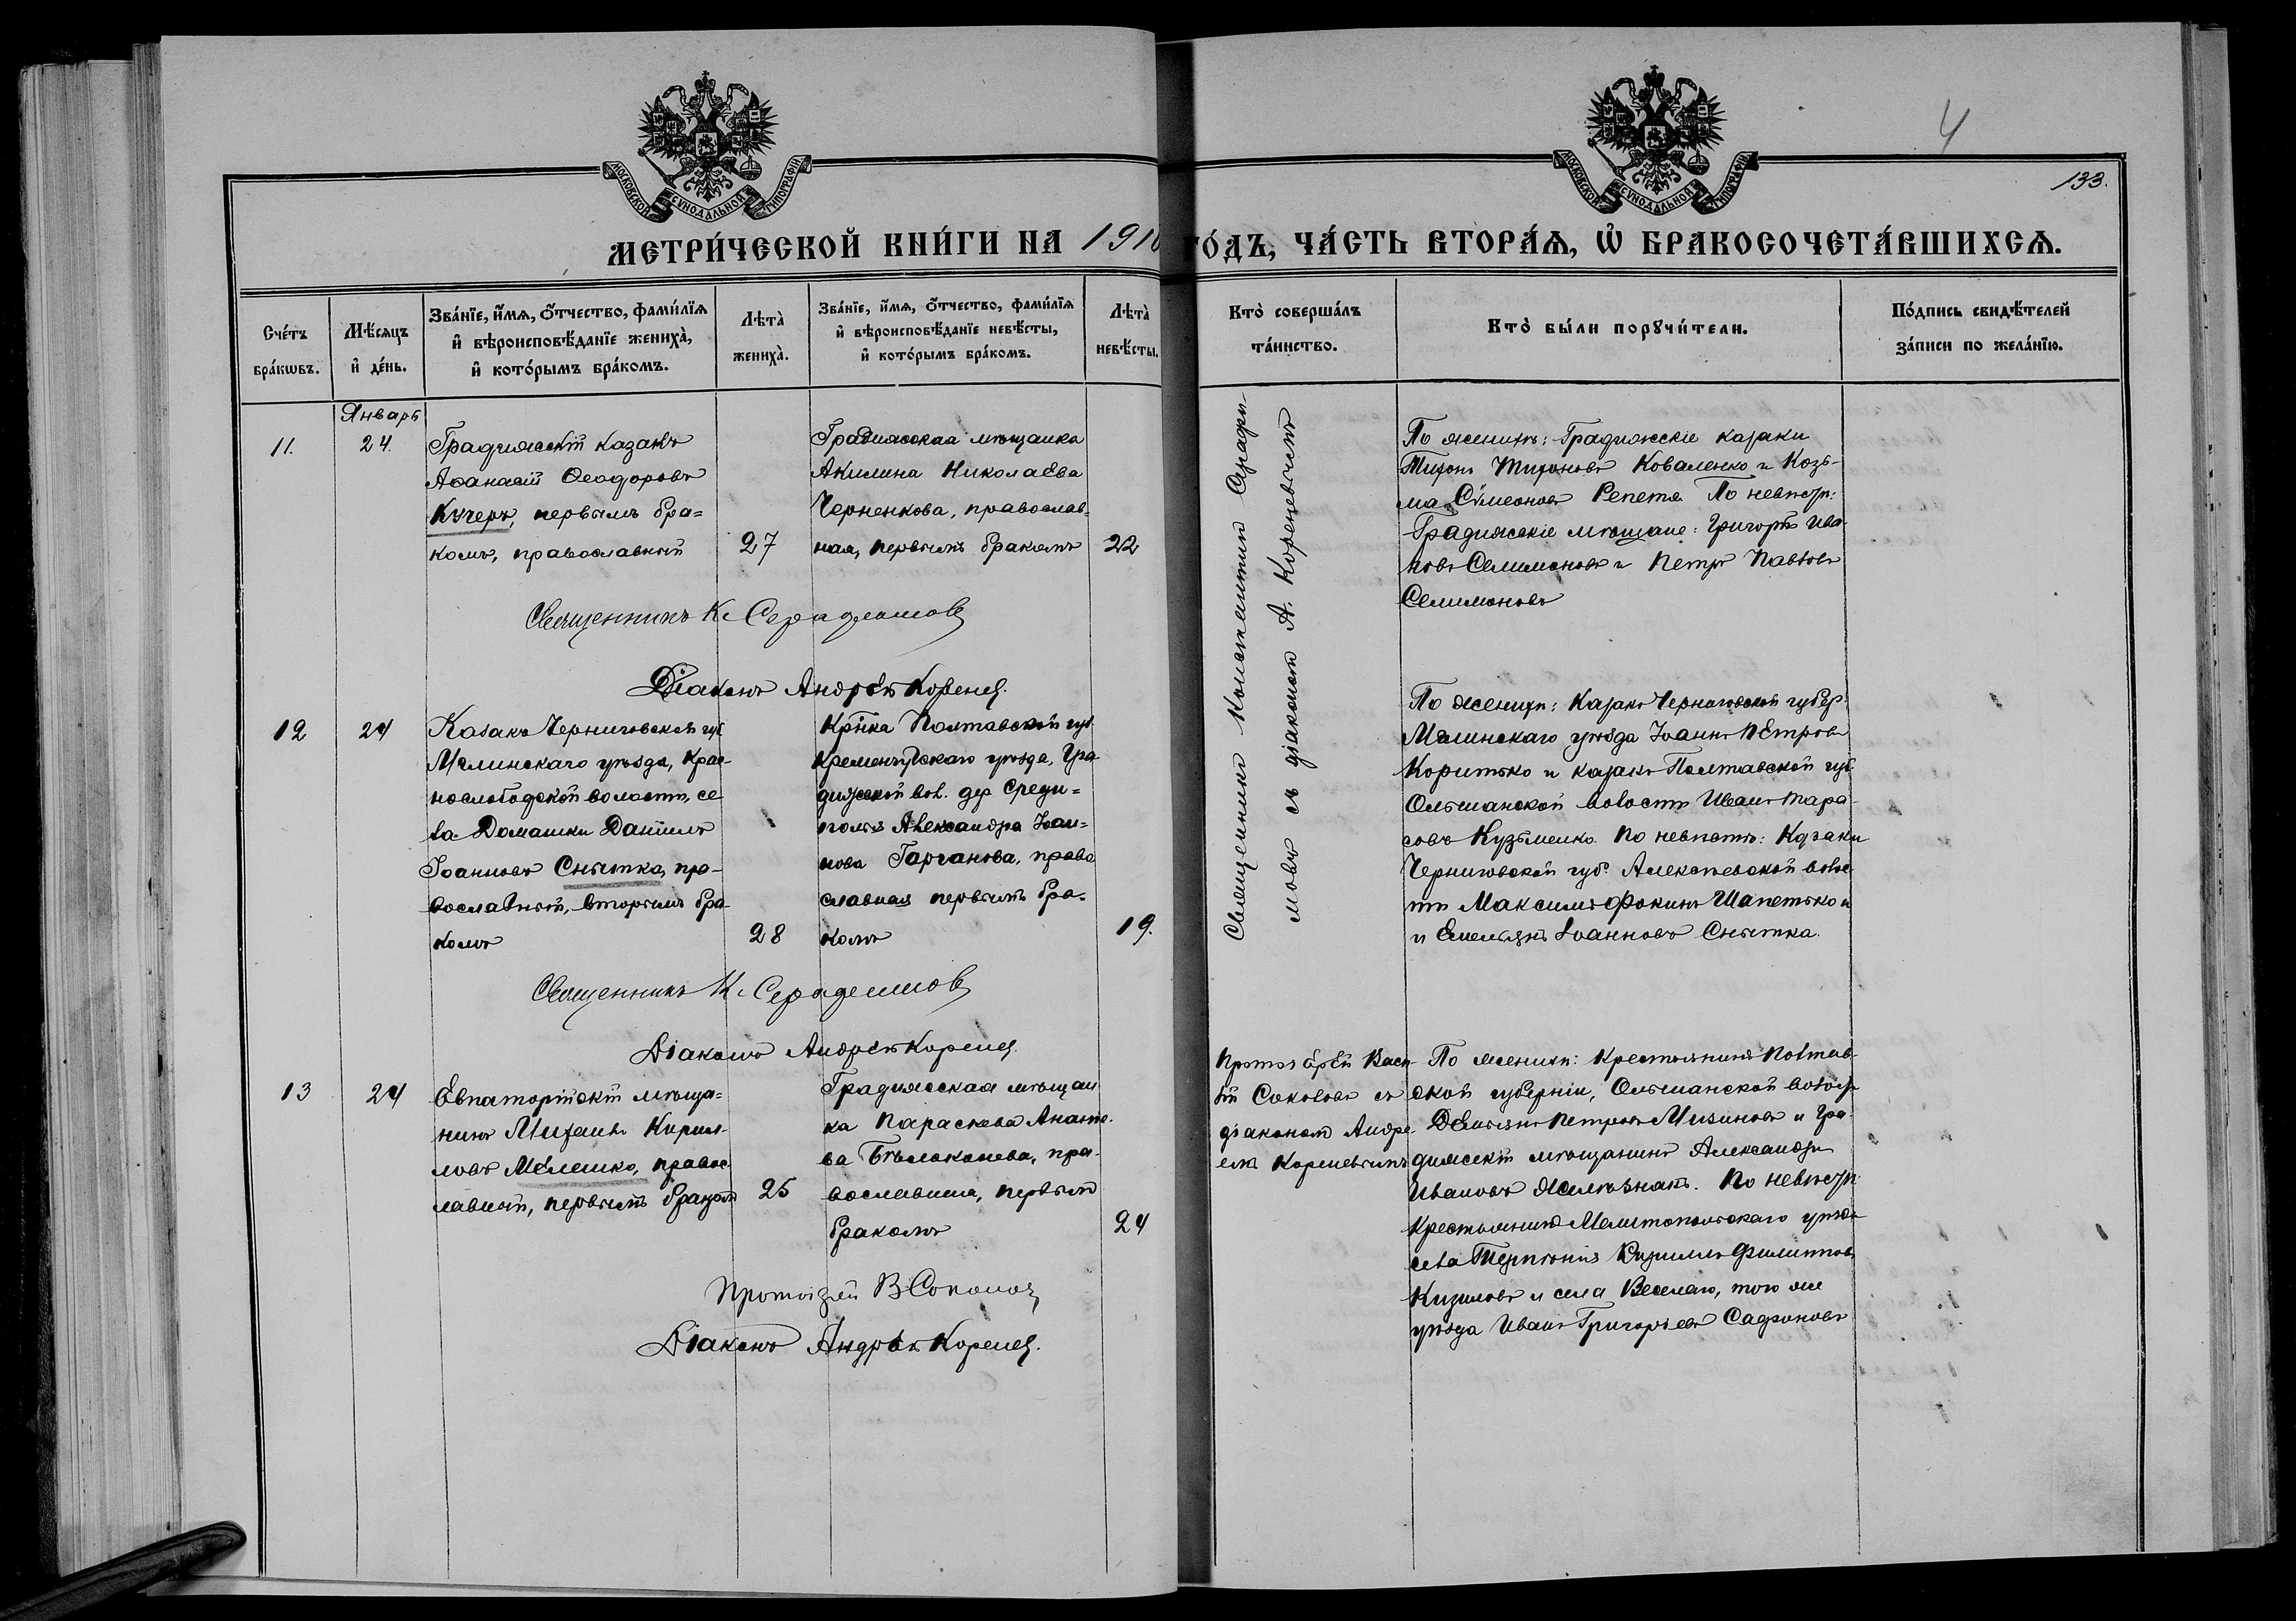 4
133.
МОСКОВСКОЙ СѴНОДАЛЬНОЙ ТИПОГРАФІИ
МОСКОВСКОЙ СѴНОДАЛЬНОЙ ТИПОГРАФІИ
МЕТРИ́ЧЕСКОЙ КНИ́ГИ НА 1910 ГО́ДЪ, ЧА́СТЬ ВТОРА́Ѧ, Ѽ БРАКОСОЧЕТА́ВШИХСѦ.
Сче́тъ бра́кѡвъ.
Мѣ́сяцъ и҆ де́нь.
Зва́нїе, и҆́мѧ, ѻ҆́тчество, фами́лїѧ
и҆ вѣроисповѣ́данїе жениха̀,
и҆ кото́рымъ бра́комъ.
Лѣта̀ жениха̀.
Зва́нїе, и҆́мѧ, ѻ҆́тчество, фами́лїѧ
и҆ вѣроисповѣ́данїе невѣ́сты,
и҆ кото́рымъ бра́комъ.
Лѣта̀ невѣ́сты.
Кто̀ соверша́лъ та́инство.
Кто̀ бы́ли порꙋчи́тели.
По́дпись свидѣ́телей
за́писи по жела́нїю.
Январь
11.
24.
Градижскій казакъ
Аѳанасій Ѳеодоровъ
Кучеръ, первымъ бра=
комъ, православный
27
Градижская мѣщанка
Акилина Николаева
Черненкова, православ=
ная, первымъ бракомъ
22
Священникъ Константинъ Серади-
мовъ съ діакономъ А. Кореневичемъ
По женихѣ: Градижскіе казаки
Тихонъ Тихоновъ Коваленко и Козь-
ма Симеоновъ Репета По невѣстѣ:
Градижскіе мѣщане: Григорій Ива-
новъ Селимоновъ и Петръ Павловъ
Селимоновъ
Священникъ К.
Діаконъ Андрей Коренев.
12
24
Казакъ Черниговской губ
Мглинскаго уѣзда, Крас-
нослободской волости, се
ла Домашки Даніилъ
Іоанновъ Снытка, пра-
вославный, вторымъ бра-
комъ
28
Крⷭ҇нка Полтавской губ.
Кременчугскаго уѣзда, Гра
дижской вол. дер Среди=
полья Александра Іоан=
нова Гарганова, право
славная первымъ бра-
комъ
19.
По женихѣ: Казакъ Черниговской губер.
Мглинскаго уѣзда Іоаннъ Петровъ
Коритько и казакъ Полтавской губ.
Ольшанской волости Иванъ Тара-
совъ Кузьменко. По невѣстѣ: Казаки
Черниговской губ. Алексѣевской волос
ти Максимъ Фокинъ Шапетько и
и Емельянъ Іоанновъ Снытка.
Священникъ К.
Діаконъ Андрей Коренев.
13
24
Евпаторійскій мѣща=
нинъ Михаилъ Кирил-
ловъ Мелешко, правос
лавный, первымъ бракомъ
25
Градижская мѣщан
ка Параскева
ва Бѣлоконева, пра-
вославная, первымъ
бракомъ
24
Протоіерей Васи-
лій Соколовъ съ
діакономъ Андре-
емъ Кореневымъ
По женихѣ: Крестьянинъ Полтав-
ской губерніи, Ольшанской волости
Демьянъ Петровъ Мизиновъ и Гра-
дижскій мѣщанинъ Александръ
Ивановъ Желѣзнякъ. По невѣстѣ
Крестьянинъ Мелитопольскаго уѣзда
села Терпѣнія Кириллъ Филиппов
Кизиловъ и села Веселаго, того же
уѣзда Иванъ Григорьевъ Сафоновъ
Протоіерей В. Соколов
Діаконъ Андрей Коренев.